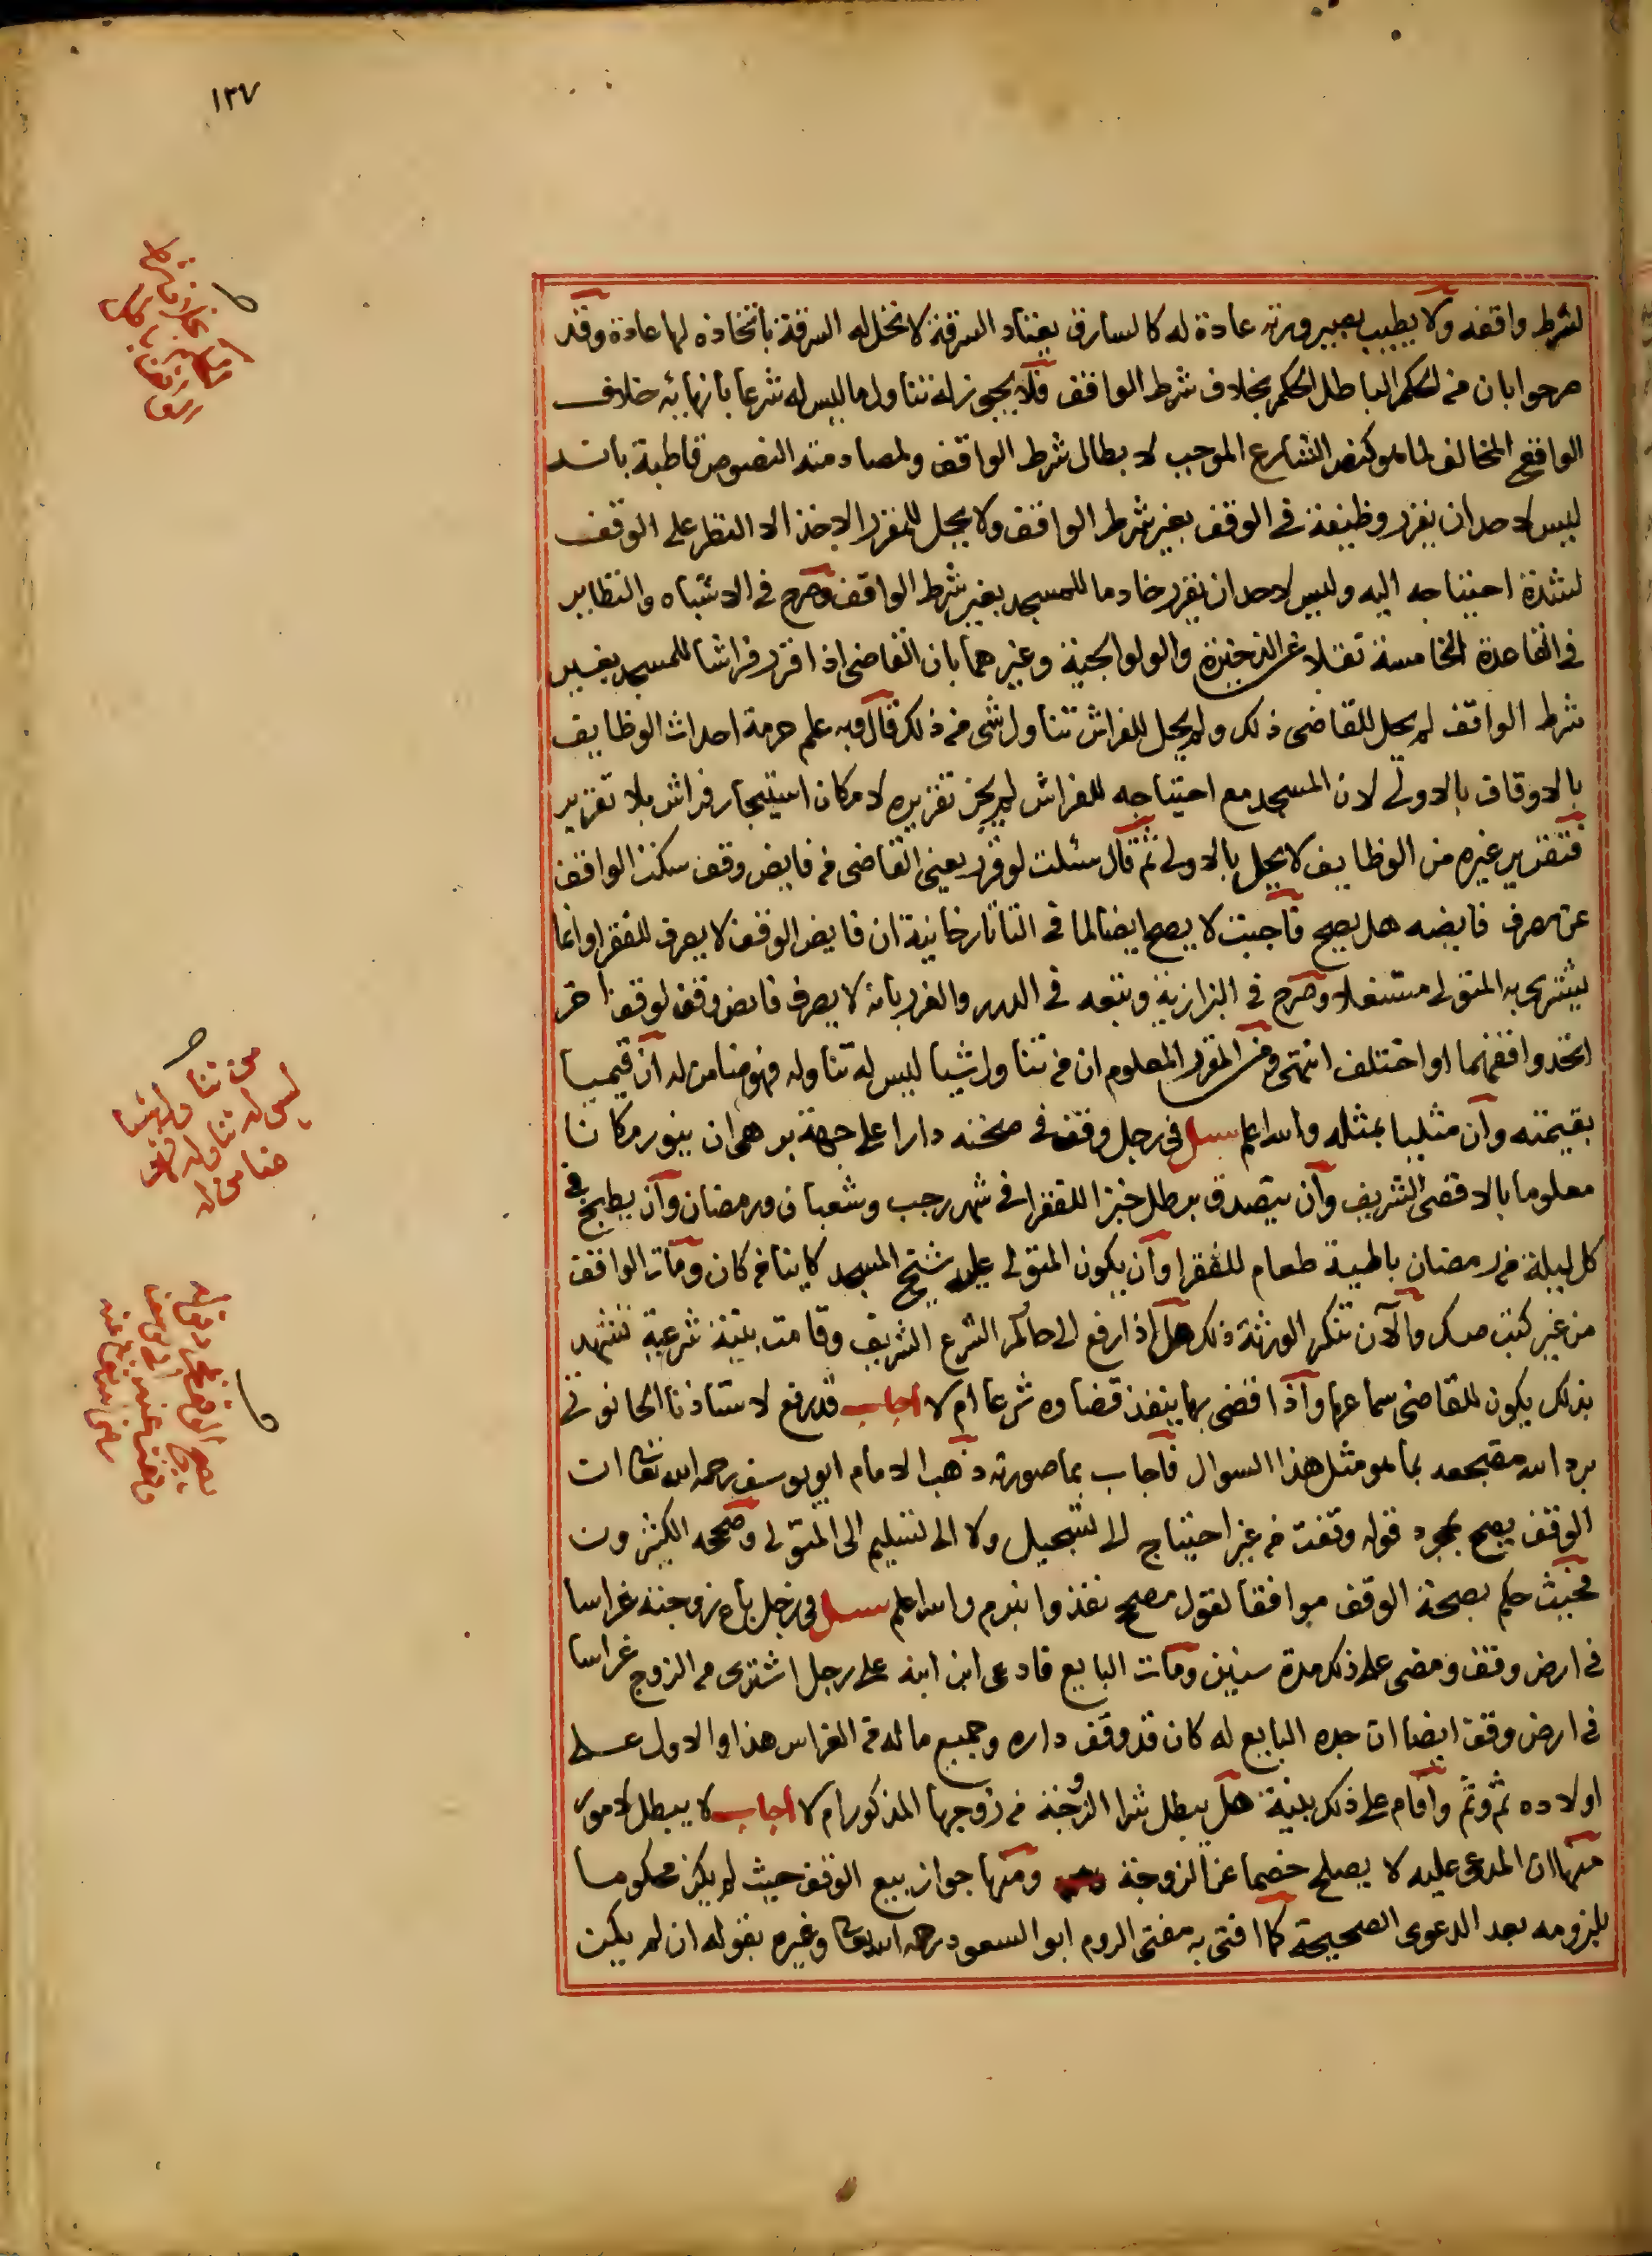 ١٣٧
لشرط واقفه ولا يطيب بصيرورته عادة له كالسارق يعتاد السرقة لا تحل له السرقة باتخاذه لها عادة وقد
صرحوا بان من الحكم الباطل الحكم بخلاف شرط الواقف فلا يجوز له تناول ما ليس له شرعا بانهائه خلاف
الواقع المخالف لما هو كنص الشارع الموجب لابطال شرط الواقف ولمصادمته النصوص قاطبة بانه
ليس لاحد ان يقرر وظيفة في الوقف بغير شرط الواقف ولا يحل للمقرر الاخذ الا النظر على الوقف
لشدة احتياجه اليه وليس لاحد ان يقرر خادما للمسجد بغير شرط الواقف وصرح في الاشباه والنظاير
في القاعدة الخامسة نقلا عن الذخيرة والولوالجية وغيرهما بان القاضي اذا قرر فراشا للمسجد بغير
شرط الواقف لم يحل للقاضي ذلك ولم يحل للفراش تناول شي من ذلك قال وبه علم حرمة احداث الوظايف
بالاوقاف بالاولى لان المسجد مع احتياجه للفراش لم يجز تقريره لامكان استيجار فراش بلا تقرير
فتقرير غيره من الوظايف لا يحل بالاولى ثم قال سئلت لو قرر يعني القاضي من فايض وقف سكت الواقف
عن مصرف فايضه هل يصح فاجبت لا يصح ايضا لما في التاتارخانية ان فايض الوقف لا يصرف للفقرا وانما
يشترى به المتولي مستغلا وصرح في البزازية وتبعه في الدرر والغرر بانه لا يصرف فايض وقف لوقف اخر
اتحد واقفهما او اختلف انتهى ومن المقرر المعلوم ان من تناول شيا ليس له تناوله فهو ضامن له ان قيميا
بقيمته وان مثليا بمثله والله اعلم سئل في رجل وقف في صحته دارا على جهة بر هي ان ينور مكانا
معلوما بالاقصى الشريف وان يتصدق برطل خبزا للفقرا في شهر رجب وشعبان ورمضان وان يطبخ في
كل ليلة من رمضان باطية طعام للفقرا وان يكون المتولي عليه شيخ المسجد كاينا من كان ومات الواقف
من غير كتب صك والآن تنكر الورثة ذلك هل اذا رفع الى حاكم الشرع الشريف وقامت بينة شرعية تشهد
بذلك يكون للقاضي سماعها واذا قضى بها ينفذ قضاوه شرعا ام لا اجاب قد رفع لاستاذنا الحانوتي
برد الله مضجعه بما هو مثل هذا السوال فاجاب بما صورته ذهب الامام ابو يوسف رحمه الله تعالى ان
الوقف يصح بمجرد قوله وقفت من غير احتياج الى تسجيل ولا الى تسليم الى المتولي وصححه الكثيرون
فحيث حكم بصحة الوقف موافقا لقول مصحح نفذ وانبرم والله اعلم سئل في رجل باع زوجته غراسا
في ارض وقف ومضى على ذلك مدة سنين ومات البايع فادعى ابن ابنه على رجل اشترى من الزوج غراسا
في ارض وقف ايضا ان جده البايع له كان قد وقف داره وجميع ماله من الغراس هذا والاول على
اولاده ثم وثم واقام على ذلك بينة هل يبطل شرا الزوجة من زوجها المذكور ام لا اجاب لا يبطل لامور
منها ان المدعى عليه لا يصلح خصما عن الزوجة ومنها جواز بيع الوقف حيث لم يكن محكوما
بلزومه بعد الدعوى الصحيحة كما افتى به مفتي الروم ابو السعود رحمه الله تعالى وغيره بقوله ان لم يكن
من تناول شيا
ليس له تناوله فهو
ضامن له